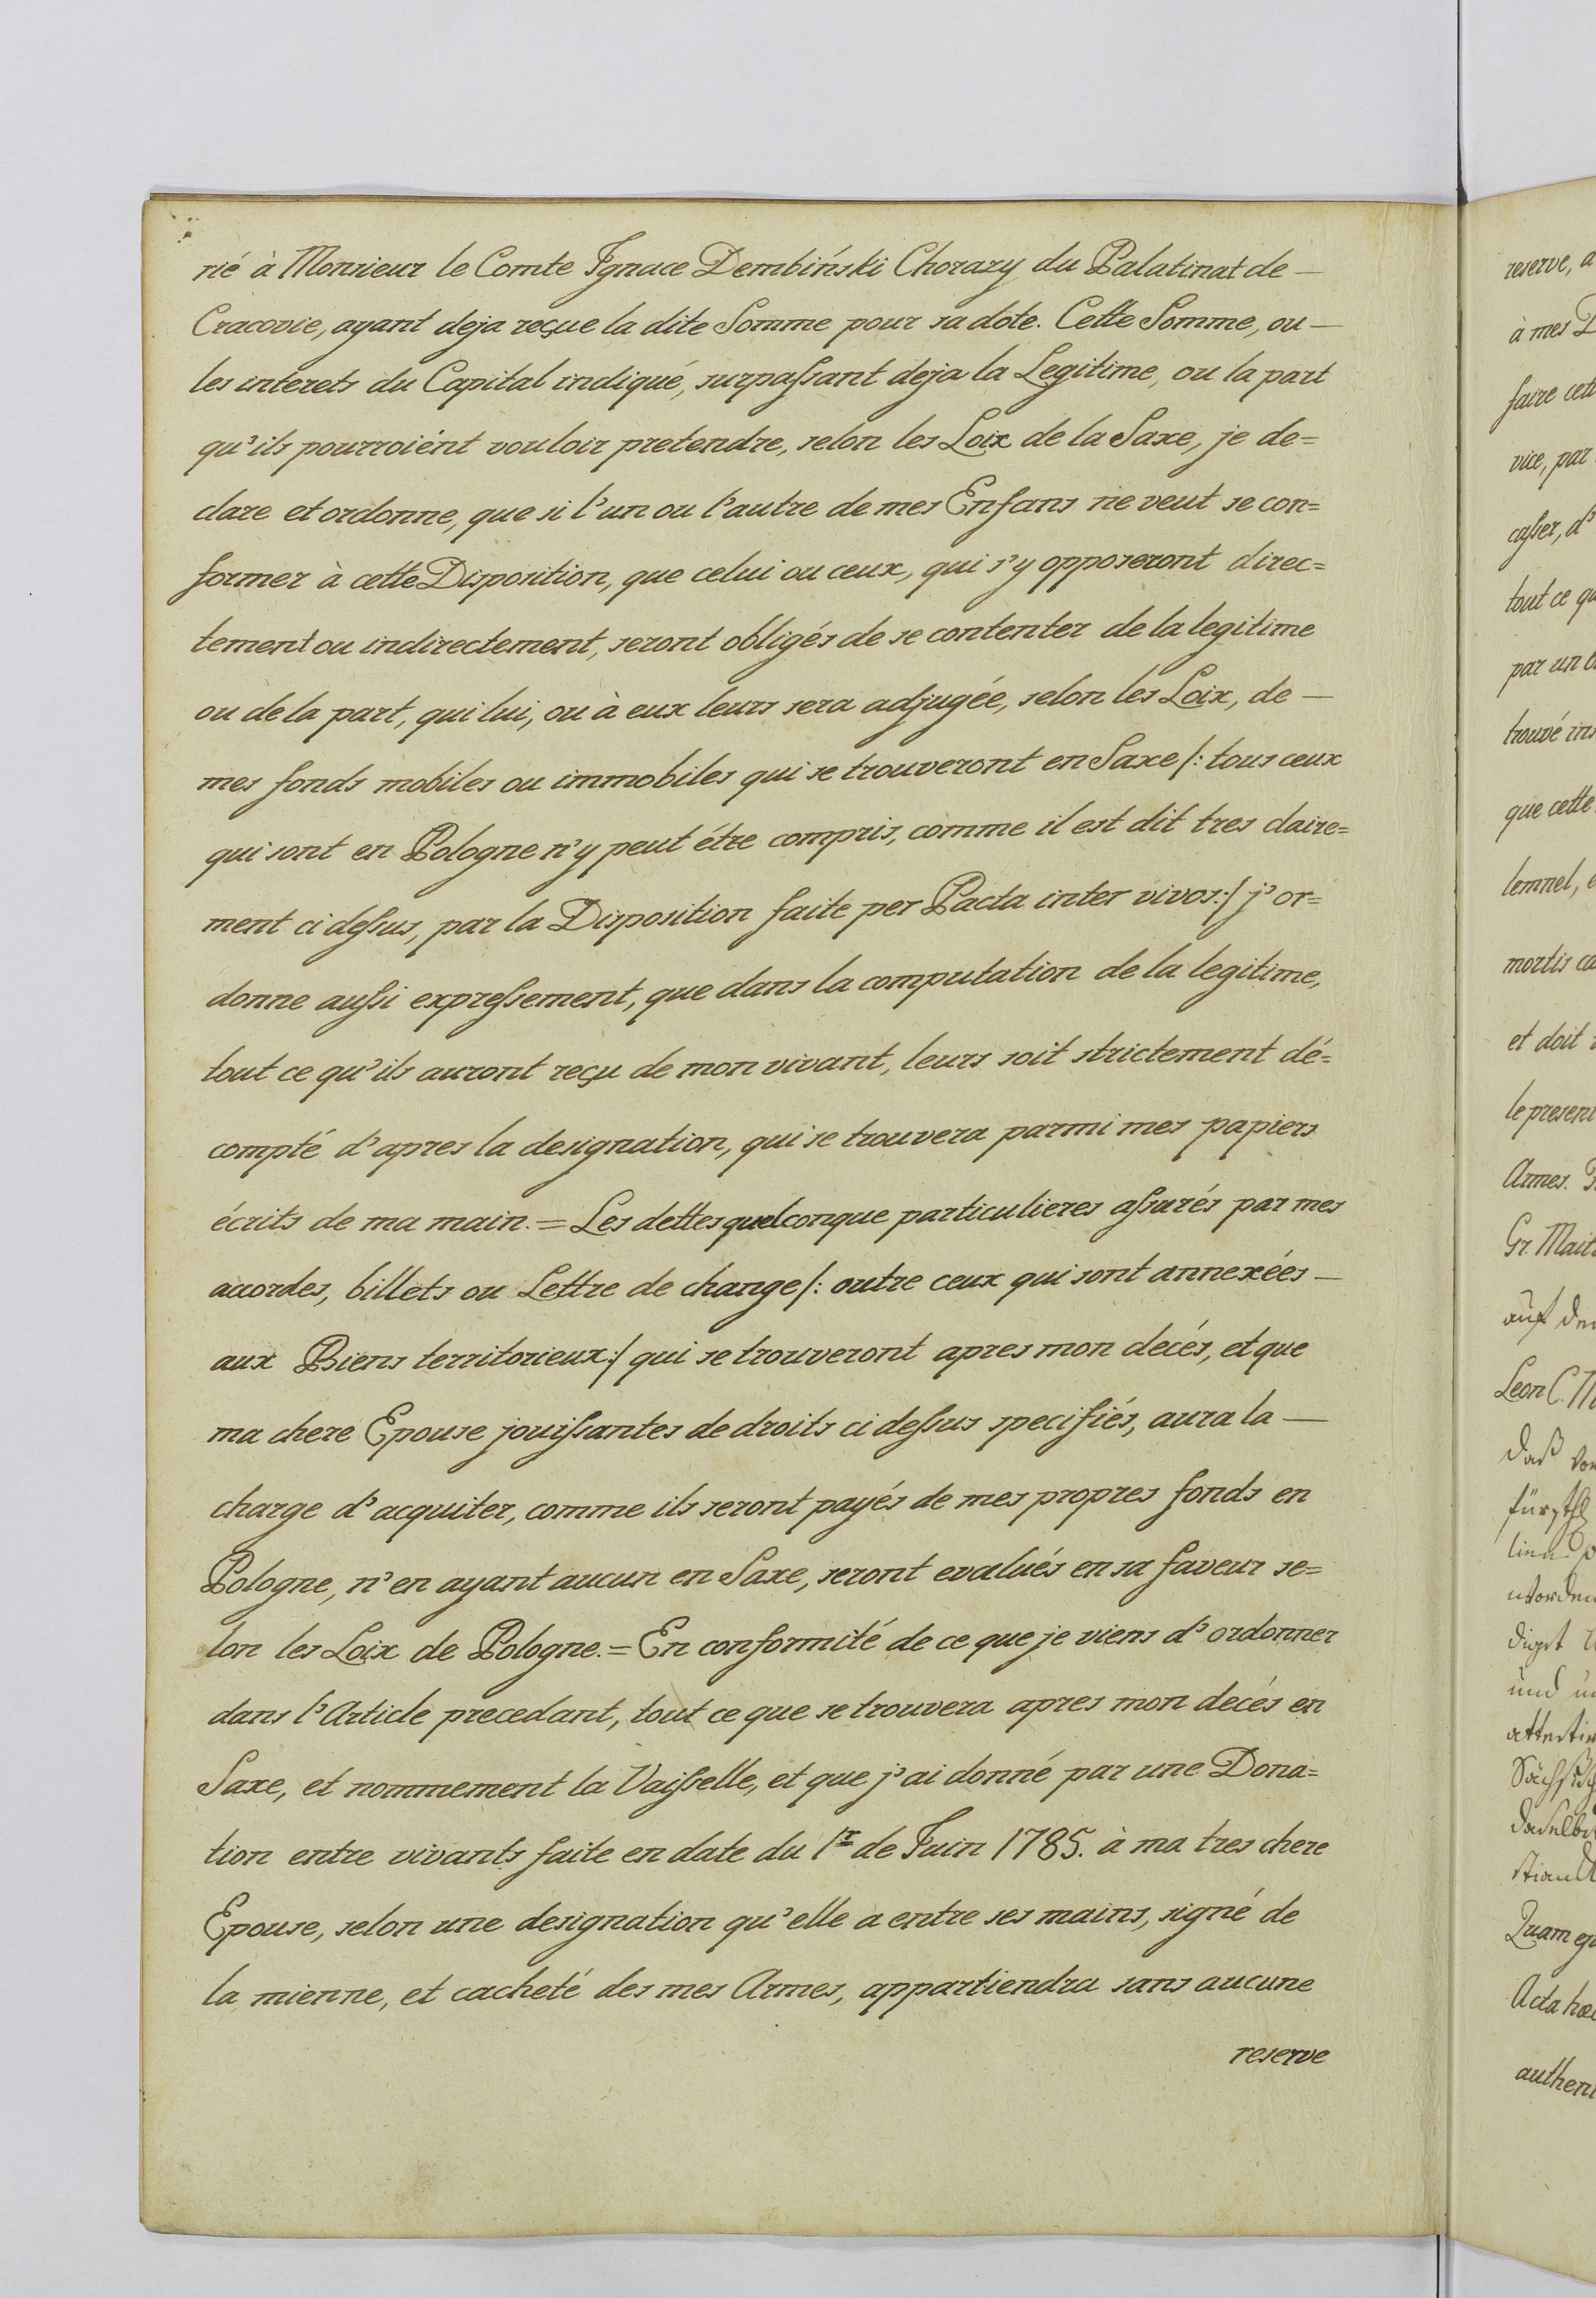 rié à Monsieur le Comte Ignace Dembiński Chorazy du Palatinat de —
Cracovie, ayant deja reçue la dite Somme pour sa dote. Cette Somme, ou —
les interets du Capital indiqué, surpaſsant deja la Legitime, ou la part
qu'ils pourroiént vouloir pretendre, selon les Loix de la Saxe, je de=
clare et ordonne, que si l'un ou l'autre de mes Enfans ne veut se con=
former à cette Disposition, que celui ou ceux, qui s'y opposeront direc=
tement ou indirectement, seront obligés de se contenter de la legitime
ou de la part, qui lui, ou à eux leurs sera adjugée, selon les Loix, de —
mes fonds mobiles ou immobiles qui se trouveront en Saxe /: tous ceux
qui sont en Pologne n'y peut étre compris, comme il est dit tres claire=
ment ci deſsus, par la Disposition faite per Pacta inter vivos :/ j'or=
donne auſsi expreſsement, que dans la computation de la legitime,
tout ce qu'ils auront reçu de mon vivant, leurs soit strictement dé=
compté d'apres la designation, qui se trouvera parmi mes papiers
écrits de ma main. = Les dettes quelconque particulieres aſsurés par mes
accordes, billets ou Lettre de change /: outre ceux qui sont annexées —
aux Biens territorieux :/ qui se trouveront apres mon decés, et que
ma chere Epouse jouiſsantes de droits ci deſsus specifiés, aura la —
charge d'acquiter, comme ils seront payés de mes propres fonds en
Pologne, n'en ayant aucun en Saxe, seront evalués en sa faveur se=
lon les Loix de Pologne. = En conformité de ce que je viens d'ordonner
dans l'Article precedant, tout ce que se trouvera apres mon decés en
Saxe, et nommement la Vaiſselle, et que j'ai donné par une Dona=
tion entre vivants faite en date du 1r de Juin 1785. à ma tres chere
Epouse, selon une designation qu'elle a entre ses mains, signé de
la mienne, et cacheté des mes Armes, appartiendra sans aucune
reserve
reserve, a
à mes
faire cett
vice, par
caſser, d'
tout ce qu
par un
trouvé ins
que cette
lemnel, e
mortis ca
et doit
le present
Armes.
Gr. Mait
auf den
Leon C. M
daß von
und
Quam
Acta hæc
authen